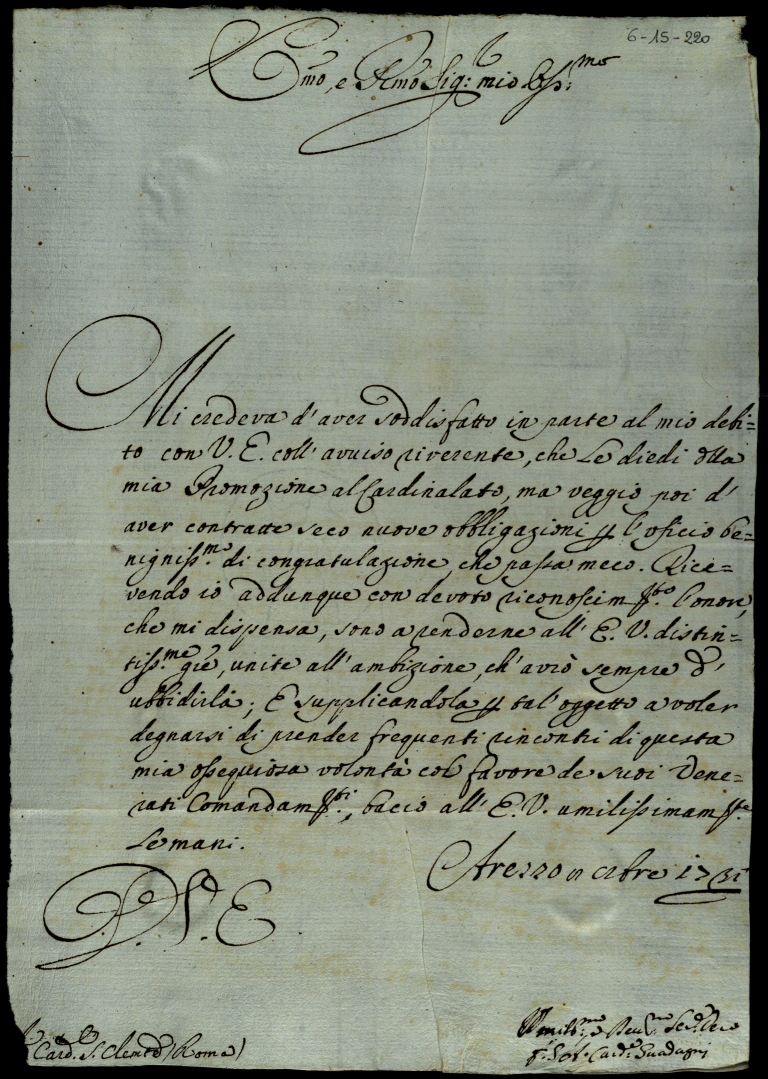 6-15-220
Emo, e Rmo Sig.r mio Oss.mo
Mi credeva d'aver soddisfatto in parte al mio debi=
to con V. E. coll' avviso riverente, che Le diedi della
mia Promozione al Cardinalato, ma veggio poi d'
aver contratte seco nuove obbligazioni p l'oficio be=
nigniss.mo di congratulazione, che passa meco. Rice=
vendo io addunque con devoto riconoscim.to l'onore,
che mi dispensa, sono a renderne all' E. V. distin=
tiss.me gie, unite all' ambizione, ch' avrò sempre d'
ubbidirla; E supplicandola p tal' oggetto a voler
degnarsi di prender frequenti rincontri di questa
mia ossequiosa volontà col favore de suoi Vene=
rati Comandam.ti, bacio all' E. V. umilissimam.te
Le mani.
Arezzo 1731
D. V. E.
Card.le S. Clemte (Roma)
Umiliss.mo e Devv.mo Ser.re Vero
Card.le Guadagni